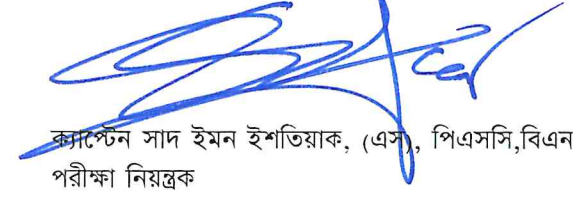 ক্যাপ্টেন সাদ ইমন ইশতিয়াক, (এস), পিএসসি,বিএন
পরীক্ষা নিয়ন্ত্রক